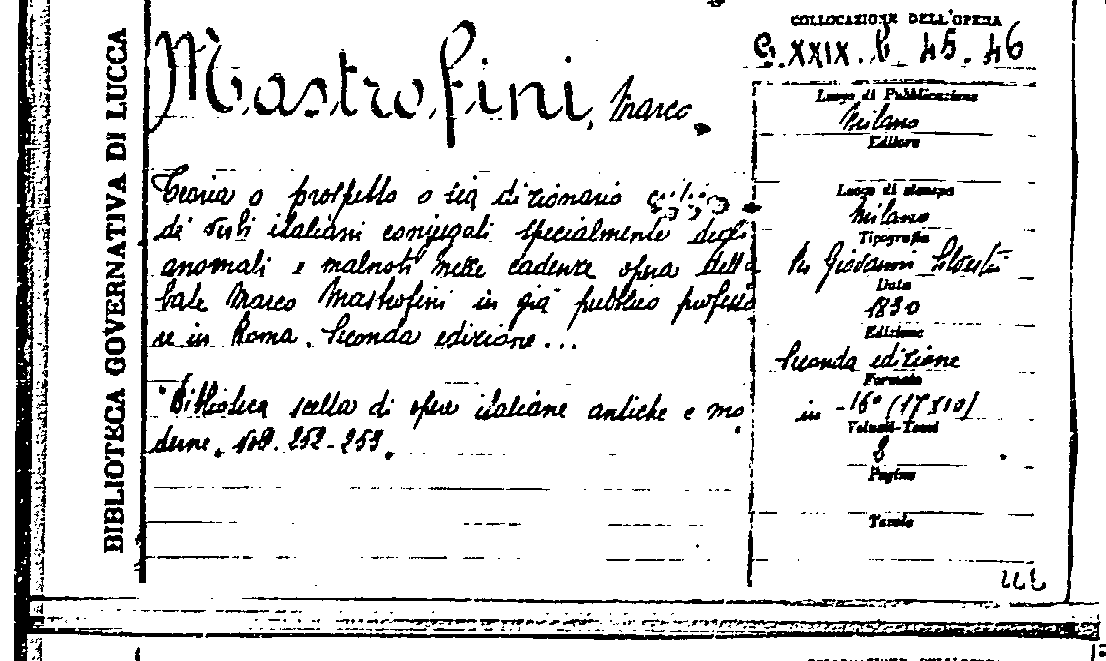 BIBLIOTECA GOVERNATIVA DI LUCCA
Mastrofini, Marco.
Teoria o prospetto o sia dizionario critico
di verbi italiani conjugati specialmente degli
anomali e malnoti nelle cadenze opera della
bate Marco Mastrofini in già pubblico professo
re in Roma. Seconda edizione...
"Biblioteca scelta di opere italiane antiche e mo
derne. vol. 252-253.
COLLOCAZIONE DELL'OPERA
G.XXIX.b.45.46
Luogo di Pubblicazione
Milano
Editore
Luogo di stampa
Milano
Tipografia
Per Giovanni Silvestri
Data
1830
Edizione
Seconda edizione
Formato
in -16° (17x10)
Volumi-Tomi
2
Pagine
Tavole